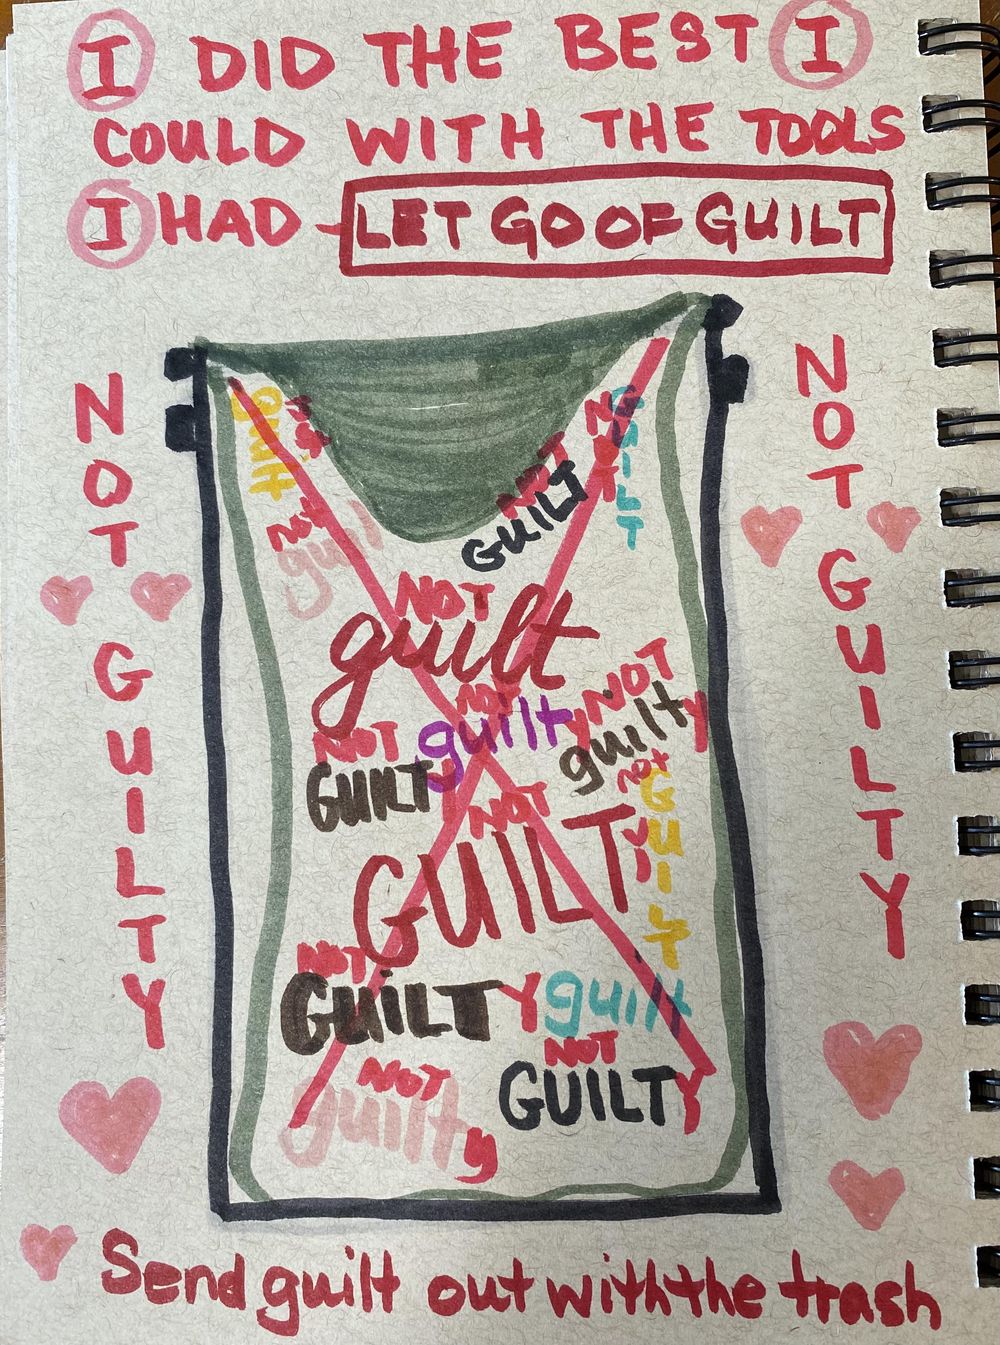 I DID THE BEST I
COULD WITH THE TOOLS
I HAD - LET GO OF GUILT
NOT GUILTY
NOT GUILTY
not
guilt
not
guilt
NOT
GUILT
NOT
GUILT
NOT
guilt
NOT
guilty
NOT
guilty
NOT
GUILTY
not
GUILTY
NOT
GUILTY
NOT
GUILTY
guilt
NOT
guilty
NOT
GUILTY
Send guilt out with the trash